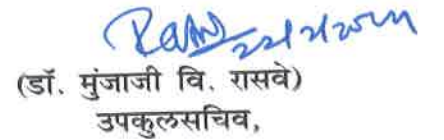 (डॉ. मुंजाजी वि. रासवे)
उपकुलसचिव,